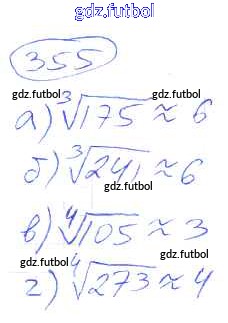 gdz.futbol
355
gdz.futbol gdz.futbol
а) ∛175 ≈ 6
б) ∛241 ≈ 6
gdz.futbol
в) ∜105 ≈ 3
gdz.futbol
г) ∜273 ≈ 4
gdz.futbol